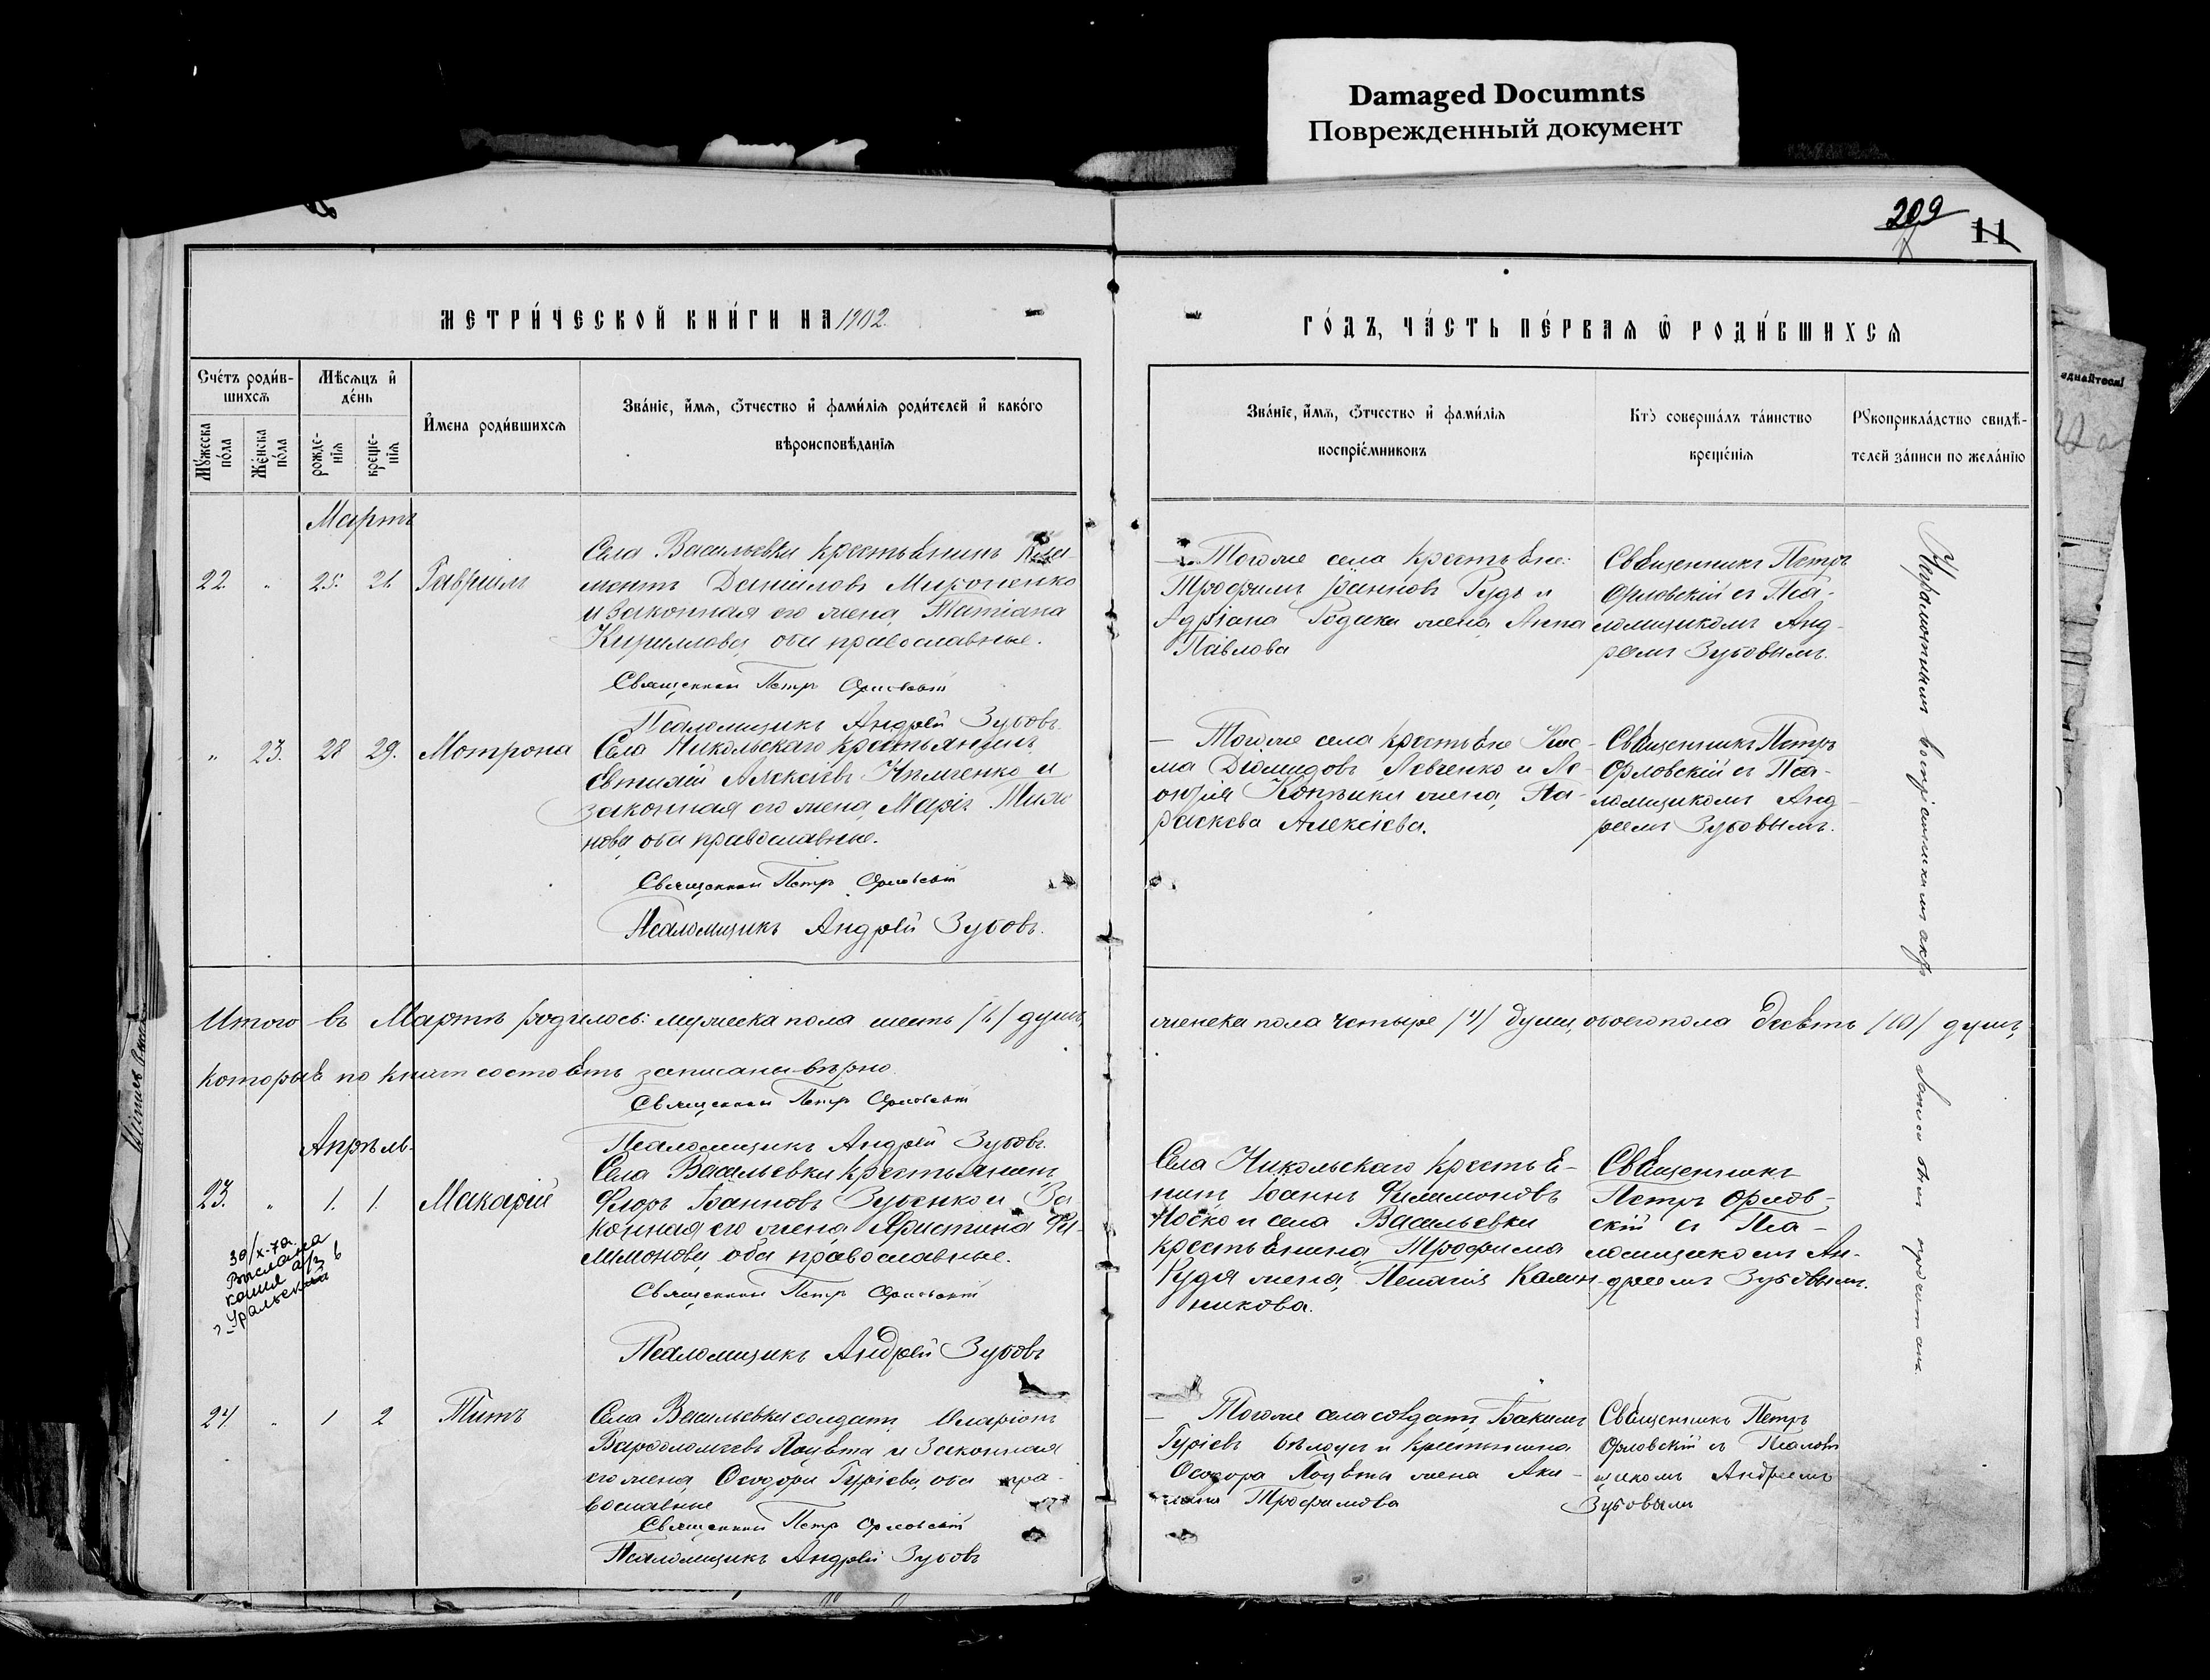 Damaged Documnts
Поврежденный документ
209
11
МЕТРИ́ЧЕСКОЙ КНИ́ГИ НА 1902.
ГО́ДЪ, ЧА́СТЬ ПЕ́РВАЯ Ѡ РОДИ́ВШИХСЯ
Сче́тъ роди́в-
шихся
Мѣ́сяцъ и
де́нь
Му́жеска
по́ла
Же́нска
по́ла
рожде-
нія
креще-
нія
И́мена роди́вшихся
Зва́ніе, и́мя, о́тчество и фами́лія роди́телей и како́го
вѣроисповѣ́данія
Зва́ніе, и́мя, о́тчество и фами́лія
воспріе́мниковъ
Кто̀ соверша́лъ та́инство
креще́нія
Рꙋкоприкла́дство свидѣ́-
телей за́писи по жела́нію
Мартъ
22. " 25. 26. Гавріилъ
Села Васильевки крестьянинъ Кли-
ментъ Даніиловъ Мироненко
и законная его жена, Татіана
Кириллова, оба православные.
Священникъ Петръ Орловскій
Псаломщикъ Андрей Зубовъ
— Тогоже села крестьяне:
Трофимъ Іоанновъ Рудь и
Адріана Родика жена, Анна
Павлова
Священникъ Петръ
Орловскій съ Пса-
ломщикомъ Анд-
реемъ Зубовымъ.
" 23. 28 29. Мотрона
Села Никольскаго крестьянинъ
Евтихій Алексіевъ
законная его жена, Марія
нова, оба православные.
Священникъ Петръ Орловскій
Псаломщикъ Андрей Зубовъ.
— Тогоже села крестьяне Кос-
ма Діомидовъ Левченко и Ле-
онтія жена, Па-
раскева Алексіева.
Священникъ Петръ
Орловскій съ Пса-
ломщикомъ Анд-
реемъ Зубовымъ.
Итого въ Мартѣ родилось: мужеска пола шесть /6/ душъ,
женска пола четыре /4/ души, обоего пола десять /10/ душъ,
которыя по книгѣ состоятъ записаны вѣрно
Священникъ Петръ Орловскій
Псаломщикъ Андрей Зубовъ.
Апрѣль.
23. " 1. 1. Макарій
Села Васильевки крестьянинъ
Флоръ Іоанновъ Зубенко и за-
конная его жена Христина Фи-
лимонова, оба православные.
Священникъ Петръ Орловскій
Псаломщикъ Андрей Зубовъ
Села Никольскаго крестья-
нинъ Іоаннъ Филимоновъ
Носко и села Васильевки
крестьянина Трофима
Рудя жена, Пелагія Калин-
никова.
Священникъ
Петръ Орлов-
скій съ Пса-
ломщикомъ Ан-
дреемъ Зубовымъ.
30/X-72.
Выслана
копия а/з в
г. Уральский
24 " 1 2 Титъ
Села Васильевки солдатъ Иларіонъ
Варфоломеевъ и законная
его жена, Феодора Гуріева, оба пра-
вославные
Священникъ Петръ Орловскій
Псаломщикъ Андрей Зубовъ
— Тогоже села солдатъ, Іоакимъ
Гуріевъ Бѣлоусъ и крестьянина
Феодора жена
Трофимова
Священникъ Петръ
Орловскій съ Псалом-
щикомъ Андреемъ
Зубовымъ
Неграмотнымъ воспріемникамъ
запись была прочитана.